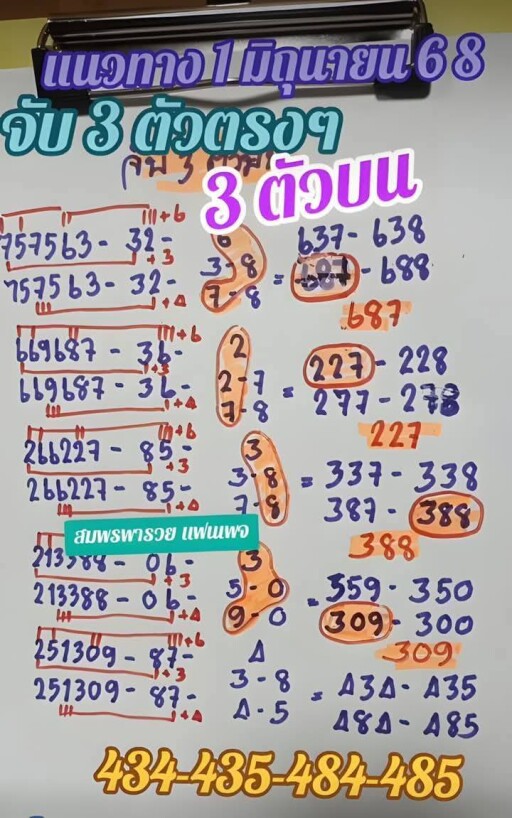 แนวทาง 1 มิถุนายน 68
จับ 3 ตัวตรงๆ
จับ 3 ตัวมา
3 ตัวบน
+6
757563 - 32 - 6 637 - 638
+3
3 - 8 = 687 - 688
757563 - 32 - 7 - 8
+4
687
+6
669687 - 36 - 2 227 - 228
+3
2 - 7 =
669687 - 36 - 7 - 8 277 - 278
+4
227
+6
266227 - 85 - 3
+3
3 - 8 = 337 - 338
266227 - 85 - 7 - 8 387 - 388
+4
สมพรพารวย แฟนเพจ
388
213388 - 06 - 3
+3
5 - 0 = 359 - 350
213388 - 06 - 9 - 0 309 - 300
+4
309
+6
251309 - 87 - 4
+3
3 - 8 = 434 - 435
251309 - 87 - 4 - 5 484 - 485
+4
434-435-484-485